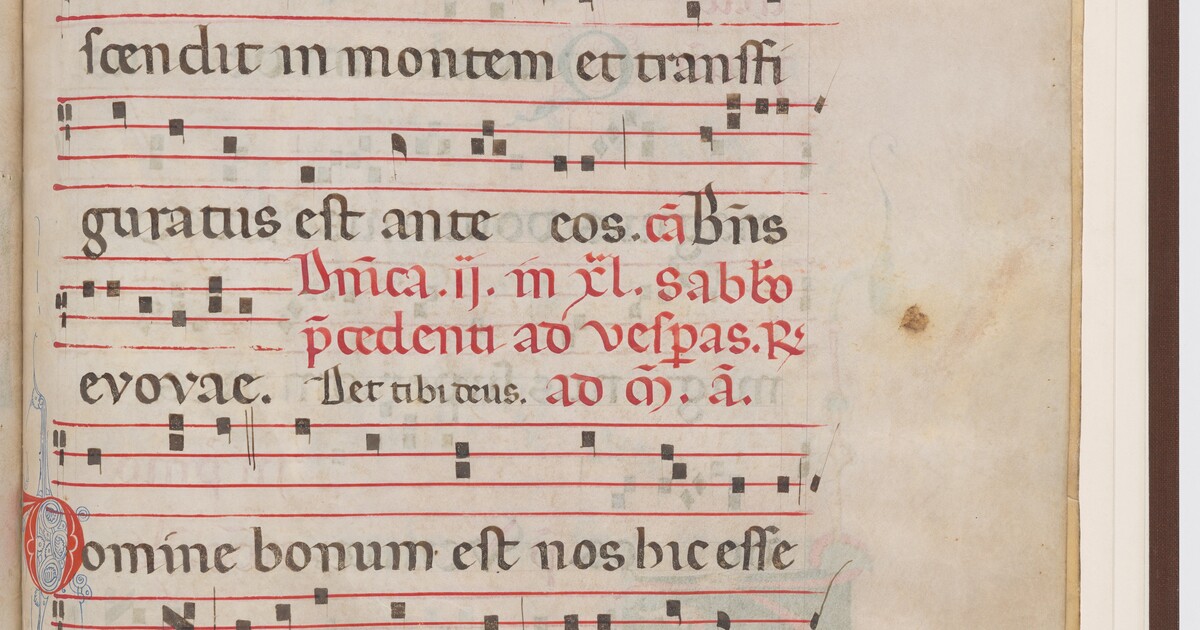 ſcendit in montem et tranſfi
guratus eſt ante eos. cā Bn̄s
Dn̄ica .ij. in xl̄. sabbo
p̄cedenti ad veſꝑas. R
evovae. Det tibi deus. ad m̄. ā.
Domine bonum eſt nos hic eſſe